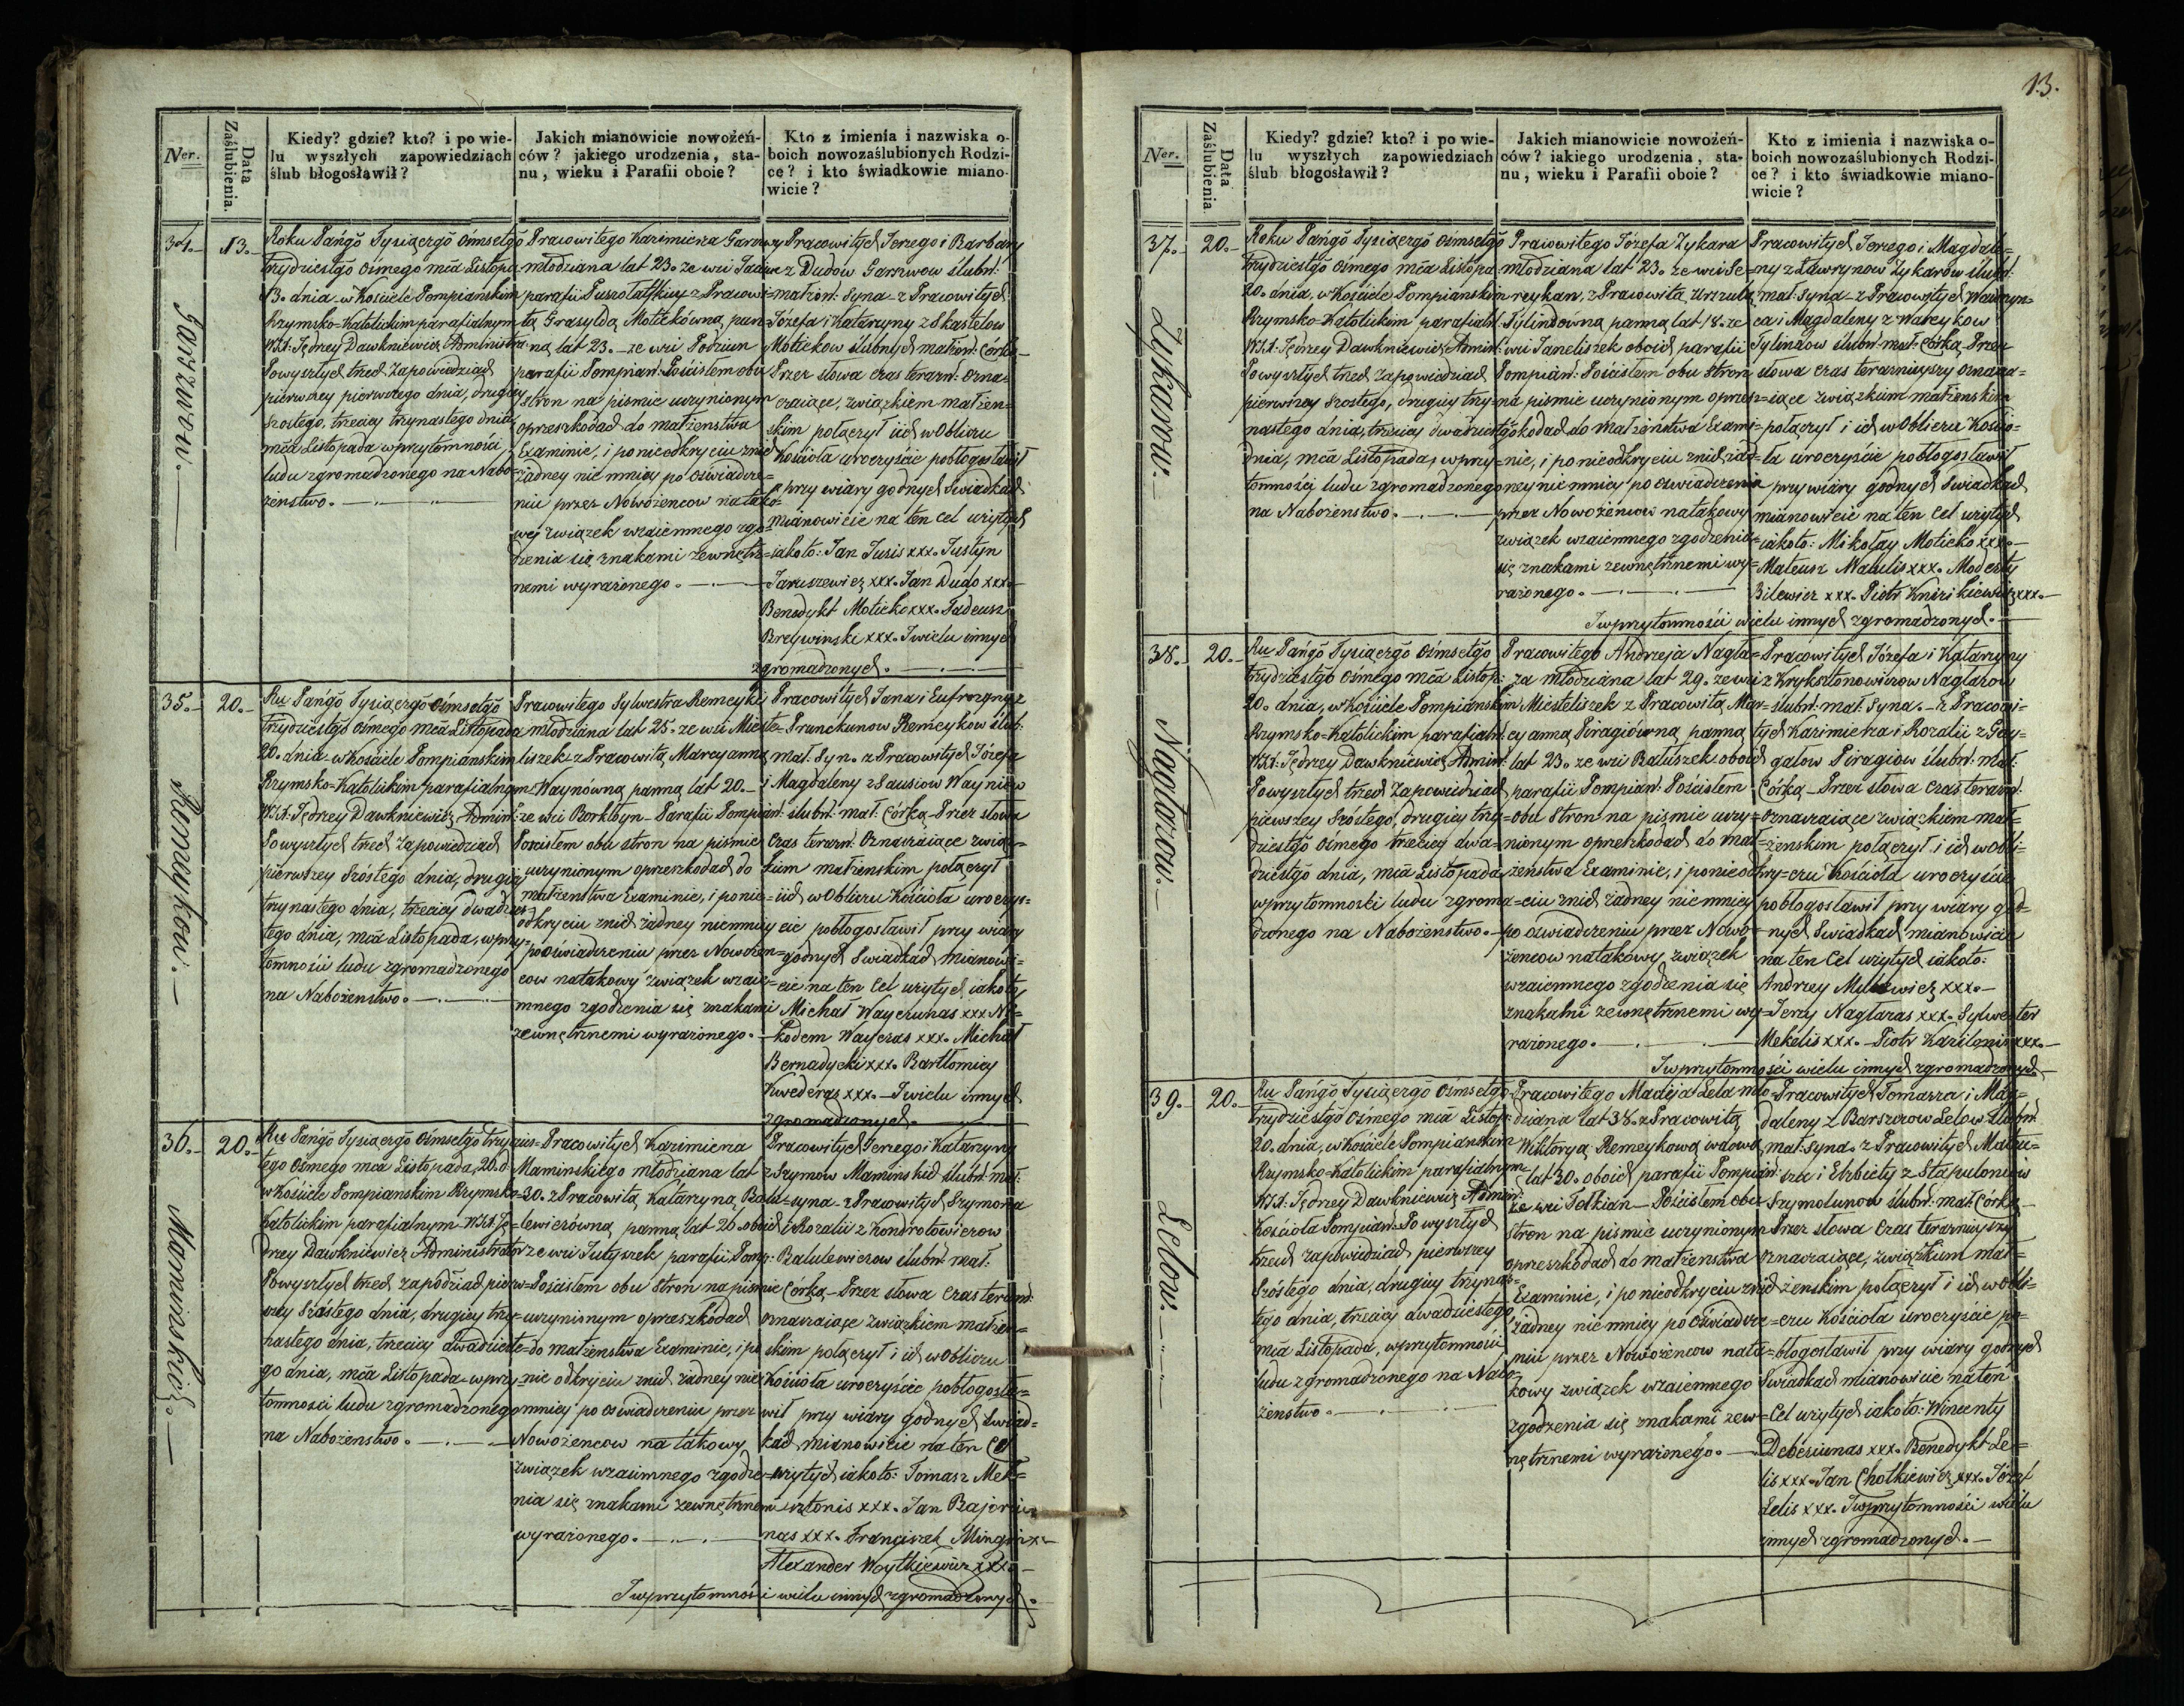 Ner.
Data Zaślubienia.
Kiedy? gdzie? kto? i po wie-
lu wyszłych zapowiedziach
ślub błogosławił?
Jakich mianowicie nowożeń-
ców? jakiego urodzenia, sta-
nu, wieku i Parafii oboie?
Kto z imienia i nazwiska o-
boich nowozaślubionych Rodzi-
ce? i kto świadkowie miano-
wicie?
34. 13.
Roku Pańgō Tysiącrgō Ośmsetgō
trzydziestgō Ośmego mča Listopa-
13. dnia w Kościele Pompianskim
Rzymsko-Katolickim parafialnym
WXd: Jędrzey Dawkniewicz Administra-
Po wyszłych trzech Zapowiedziach
pierwszey pierwszego dnia, drugiey
szostego, trzeciey trzynastego dnia
mča Listopada w przytomności
ludu zgromadzonego na Nabo-
żenstwo.
Pracowitego Kazimierza Garzwy
młodziana lat 23. ze wsi
parafii z Pracowi-
tą Grasyldą Motiekówną, pan-
ną lat 23. ze wsi Podziun
parafii Pompiań: Pościsłem obu
stron na piśmie uczynionym
oprzeszkodach do małżenstwa
Examinie, i po nieodkryciu znich
żadney nie mniey po oświadcze-
niu przez Nowożencow na tako-
wy związek wzaiemnego zgo-
dzenia się znakami zewnętrz-
nemi wyrażonego.
Pracowitych Jerzego i Barbary
z Dudow Garzwow ślubn:
małżon: Syna z Pracowitych
Józefa i Katarzyny z Skastelow
Motiekow ślubnych małżon: Córką
Przez słowa czas terazn: ozna-
czaiące, związkiem małżen-
skim połączył iich w Obliczu
Kościoła uroczyście pobłogosławił
przy wiary godnych Swiadkach
mianowicie na ten cel użytych
iakoto: Jan Jusis xxx. Justyn
Jaruszewicz xxx. Jan Dudo xxx.
Benedykt Motieko xxx. Tadeusz
Brezwinski xxx. I wielu innych
zgromadzonych.
Garzwow.
35. 20.
Ru Pańgō Tysiącrgō Ośmsetgō
trzydziestgō Ośmego mča Listopada
20. dnia w Kościele Pompianskim
Rzymsko-Katolickim parafialnym
WXd: Jędrzey Dawkniewicz Admin:
Po wyszłych trzech Zapowiedziach
pierwszey Szóstego dnia, drugiey
trzynastego dnia, trzeciey dwadzies-
tego dnia, mča Listopada, w przy-
tomności ludu zgromadzonego
na Nabożenstwo.
Pracowitego Sylwestra Remeyki
młodziana lat 25. ze wsi Mieste-
liszek z Pracowitą Marcyanną
Waynówną panną lat 20.
ze wsi Borkloyn Parafii Pompiań:
Pościsłem obu stron na piśmie
uczynionym oprzeszkodach do
małżenstwa Examinie, i ponie-
odkryciu znich żadney niemniey
po oświadczeniu przez Nowożen-
cow natakowy związek wzaie-
mnego zgodzenia się znakami
zewnętrznemi wyrażonego.
Pracowitych Jana i Eufrozyny z
Pranckunow Remeykow ślub:
mał: Syn. z Pracowitych Józefa
i Magdaleny z Sausiow Waynow
ślubn: mał: Córką Przez słowa
czas terazn: Oznaczaiące związ-
kiem małżenskim połączył
iich w Obliczu Kościoła uroczyś-
cie pobłogosławił przy wiary
godnych Swiadkach mianowi-
cie na ten Cel użytych iakoto:
Michał Wayczunas xxx Ni-
kodem Wayczas xxx. Michał
Bernadycki xxx. Bartłomiey
Kwederas xxx. I wielu innych
zgromadzonych.
Remeykow.
36. 20.
Ru Pańgō Tysiącrgō Ośmsetgō trzydzies-
tego Ośmego mča Listopada, 20. d.
w Kościele Pompianskim Rzymsko-
Katolickim parafialnym WXd: Ję-
drzey Dawkniewicz Administrator
Po wyszłych trzech zapodziach pierw-
szey Szóstego dnia, drugiey trzy-
nastego dnia, trzeciey dwudzieste-
go dnia, mča Listopada w przy-
tomności ludu zgromadzonego
na Nabożenstwo.
Pracowitych Kazimierza
Maminskiego młodziana lat
30. z Pracowitą Katarzyną Balu-
lewiczówną panną lat 20. oboich
ze wsi Jutyszek parafii Pomp:
Pościsłem obu Stron na piśmie
uczynionym oprzeszkodach
do małżenstwa Examinie, i po
nie odkryciu znich żadney nie
mniey po oświadczeniu przez
Nowożencow na takowy
związek wzaiemnego zgodze-
nia się znakami zewnętrznemi
wyrażonego.
Pracowitych Jerzego i Katarzyny
z Szymow Maminskich ślubn: mał:
syna z Pracowitych Szymona
i Rozalii z Kondrotowiczow
Balulewiczow ślubn: mał:
Córką Przez słowa czas terazn:
oznaczaiące związkiem małżen-
skim połączył i ich w Obliczu
Kościoła uroczyście pobłogosła-
wił przy wiary godnych Swiad-
kach mianowicie na ten Cel
użytych iakoto: Tomasz Mek-
sztonis xxx. Jan Bajoriu-
nas xxx. Franciszek
Alexander Woytkiewicz xxx.
I wprzytomności wielu innych zgromadzonych.
Maminskich.
13.
Ner.
Data Zaślubienia.
Kiedy? gdzie? kto? i po wie-
lu wyszłych zapowiedziach
ślub błogosławił?
Jakich mianowicie nowożeń-
ców? iakiego urodzenia, sta-
nu, wieku i Parafii oboie?
Kto z imienia i nazwiska o-
boich nowozaślubionych Rodzi-
ce? i kto świadkowie miano-
wicie?
37. 20.
Roku Pańgō Tysiącrgō Ośmsetgō
trzydziestgō Ośmego mča Listopa
20. dnia, w Kościele Pompianskim
Rzymsko-Katolickim parafialn:
WXd: Jędrzey Dawkniewicz Admin:
Po wyszłych trzech Zapowiedziach
pierwszey Szostego, drugiey trzy-
nastego dnia, trzeciey dwadziestgō
dnia, mča Listopada, w przy-
tomności ludu zgromadzonego
na Nabożenstwo.
Pracowitego Józefa Zykara
młodziana lat 23. ze wsi Se-
reykan, z Pracowitą Urszulą
Tylindówną panną lat 18. ze
wsi Janeliszek oboich parafii
Pompiań: Pościsłem obu Stron
na piśmie uczynionym oprzesz-
kodach do małżenstwa Exami-
nie, i po nieodkryciu znich żad-
ney nie mniey po oświadczeniu
przez Nowożencow natakowy
związek wzaiemnego zgodzenia
się znakami zewnętrznemi wy-
rażonego.
Pracowitych Jerzego i Magdale-
ny z Ławrynow Zykarow ślubn:
mał: Syna z Pracowitych Wawrzyn-
ca i Magdaleny z Wareykow
Tylindow ślubn: mał: Córką Przez
słowa czas teraznieyszy oznacza-
iące związkiem małżenskim
połączył i ich w Obliczu Kościo-
ła uroczyście pobłogosławił
przy wiary godnych Swiadkach
mianowicie na ten Cel użytych
iakoto: Mikołay Motieko xxx.
Mateusz Matulis xxx. Modesty
Bilewicz xxx. Piotr Knizikiewicz xxx.
I wprzytomności wielu innych zgromadzonych.
Zykarow.
38. 20.
Ru Pańgō Tysiącrgō Ośmsetgō
trzydziestgō Ośmego mča Listop:
20. dnia, w Kościele Pompianskim
Rzymsko-Katolickim parafialn:
WXd: Jędrzey Dawkniewicz Admin:
Po wyszłych trzech Zapowiedziach
pierwszey Szóstego, drugiey trzy-
dziestgō Ośmego trzeciey dwa-
dziestgō dnia, mča Listopada
w przytomności ludu zgroma-
dzonego na Nabożenstwo.
Pracowitego Andrzeja Nagla-
za młodziana lat 29. ze wsi
Miesteliszek z Pracowitą Mar-
cyanną Piragiówną panną
lat 23. ze wsi Ratuszek oboich
parafii Pompiań: Pościsłem
obu Stron na piśmie uczy-
nionym oprzeszkodach do mał-
żenstwa Examinie, i ponieodkry-
ciu znich żadney nie mniey
po oświadczeniu przez Nowo-
żencow natakowy związek
wzaiemnego zgodzenia się
znakami zewnętrznemi wy-
rażonego.
Pracowitych Józefa i Katarzyny
z Kryksztonowiczow Naglazow
ślubn: mał: Syna. z Pracowi-
tych Kazimierza i Rozalii z Gay-
galow Piragiow ślubn: mał:
Córką Przez słowa czas terazn:
oznaczaiące związkiem mał-
żenskim połączył i ich w Obli-
czu Kościoła uroczyście
pobłogosławił przy wiary god-
nych Swiadkach mianowicie
na ten Cel użytych iakoto:
Andrzey xxx.
Jerzy Naglazas xxx. Sylwester
Mekelis xxx. Piotr Kazilonis xxx.
I wprzytomności wielu innych zgromadzonych.
Naglazow.
39. 20.
Ru Pańgō Tysiącrgō Ośmsetgō
trzydziestgō Ośmego mča Listop:
20. dnia, w Kościele Pompianskim
Rzymsko-Katolickim parafialnym
WXd: Jędrzey Dawkniewicz Admin:
Kościoła Pompiań: Po wyszłych
trzech zapowiedziach pierwszey
Szóstego dnia, drugiey trzynas-
tego dnia, trzeciey dwadziestego
mča Listopada, w przytomności
ludu zgromadzonego na Nabo-
żenstwo.
Pracowitego Macieja Lela mło-
dziana lat 38. z Pracowitą
Wiktoryą Remeykową wdową
lat 30. oboich parafii Pompiań:
ze wsi Tolkian Pościsłem obu
stron na piśmie uczynionym
oprzeszkodach do małżenstwa
Examinie, i po nieodkryciu znich
żadney nie mniey po oświadcze-
niu przez Nowożencow nata-
kowy związek wzaiemnego
zgodzenia się znakami zew-
nętrznemi wyrażonego.
Pracowitych Tomasza i Mag-
daleny z Barszczow Lelow ślubn:
mał: syna. z Pracowitych Mateu-
sza i Elzbiety z Stapulonow
Szymolunow ślubn: mał: Córką
Przez słowa czas teraznieyszy
oznaczaiące, związkiem mał-
żenskim połączył i ich w Obli-
czu Kościoła uroczyście po-
błogosławił przy wiary godnych
Swiadkach mianowicie na ten
Cel użytych iakoto: Wincenty
Debesiunas xxx. Benedykt Le-
lis xxx. Jan Chotkiewicz xxx. Józef
Lelis xxx. I wprzytomności wielu
innych zgromadzonych.
Lelow.